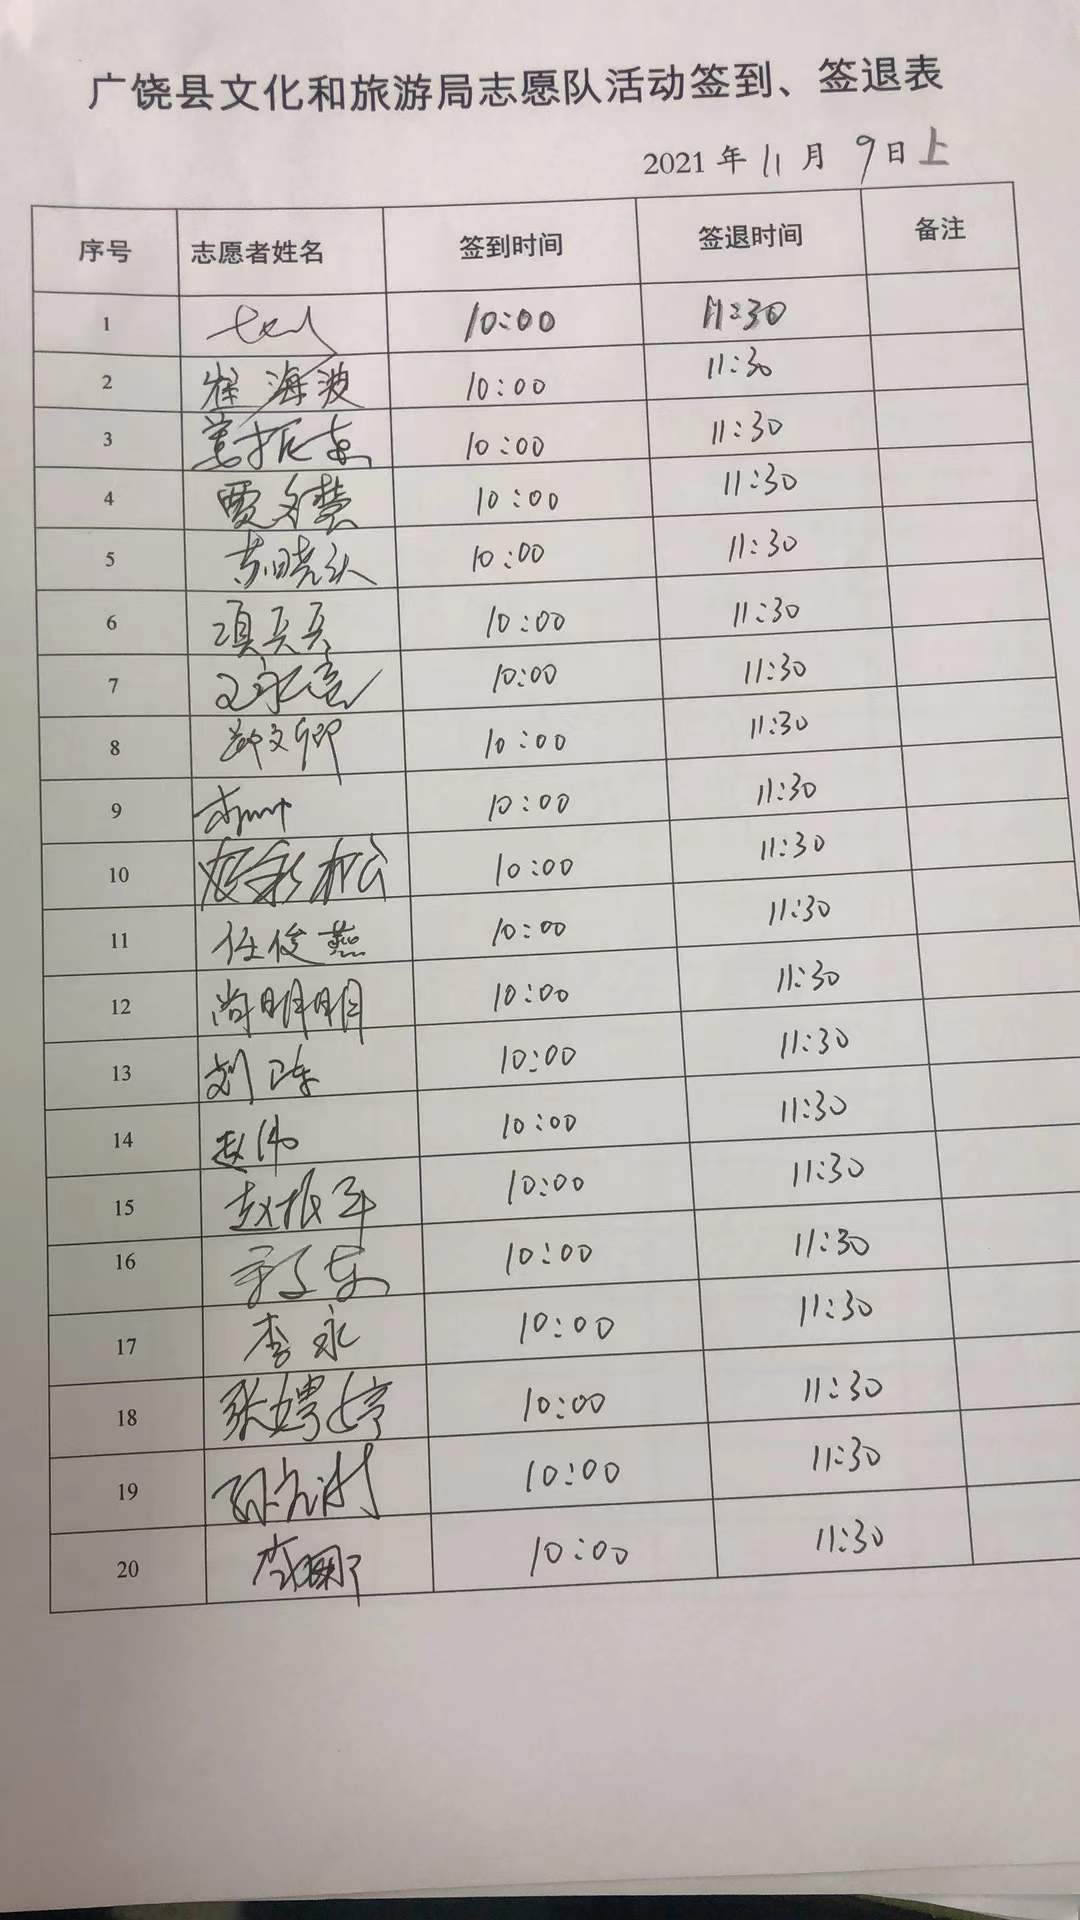 广饶县文化和旅游局志愿队活动签到、签退表
2021 年 11 月 9 日 上
序号 志愿者姓名 签到时间 签退时间 备注
1 10:00 11:30
2 崔海波 10:00 11:30
3 姜振东 10:00 11:30
4 贾文慧 10:00 11:30
5 10:00 11:30
6 项兵兵 10:00 11:30
7 10:00 11:30
8 文卿 10:00 11:30
9 10:00 11:30
10 松 10:00 11:30
11 任俊燕 10:00 11:30
12 尚明明 10:00 11:30
13 刘 10:00 11:30
14 赵伟 10:00 11:30
15 赵振军 10:00 11:30
16 10:00 11:30
17 李永 10:00 11:30
18 张娉婷 10:00 11:30
19 10:00 11:30
20 李娜 10:00 11:30